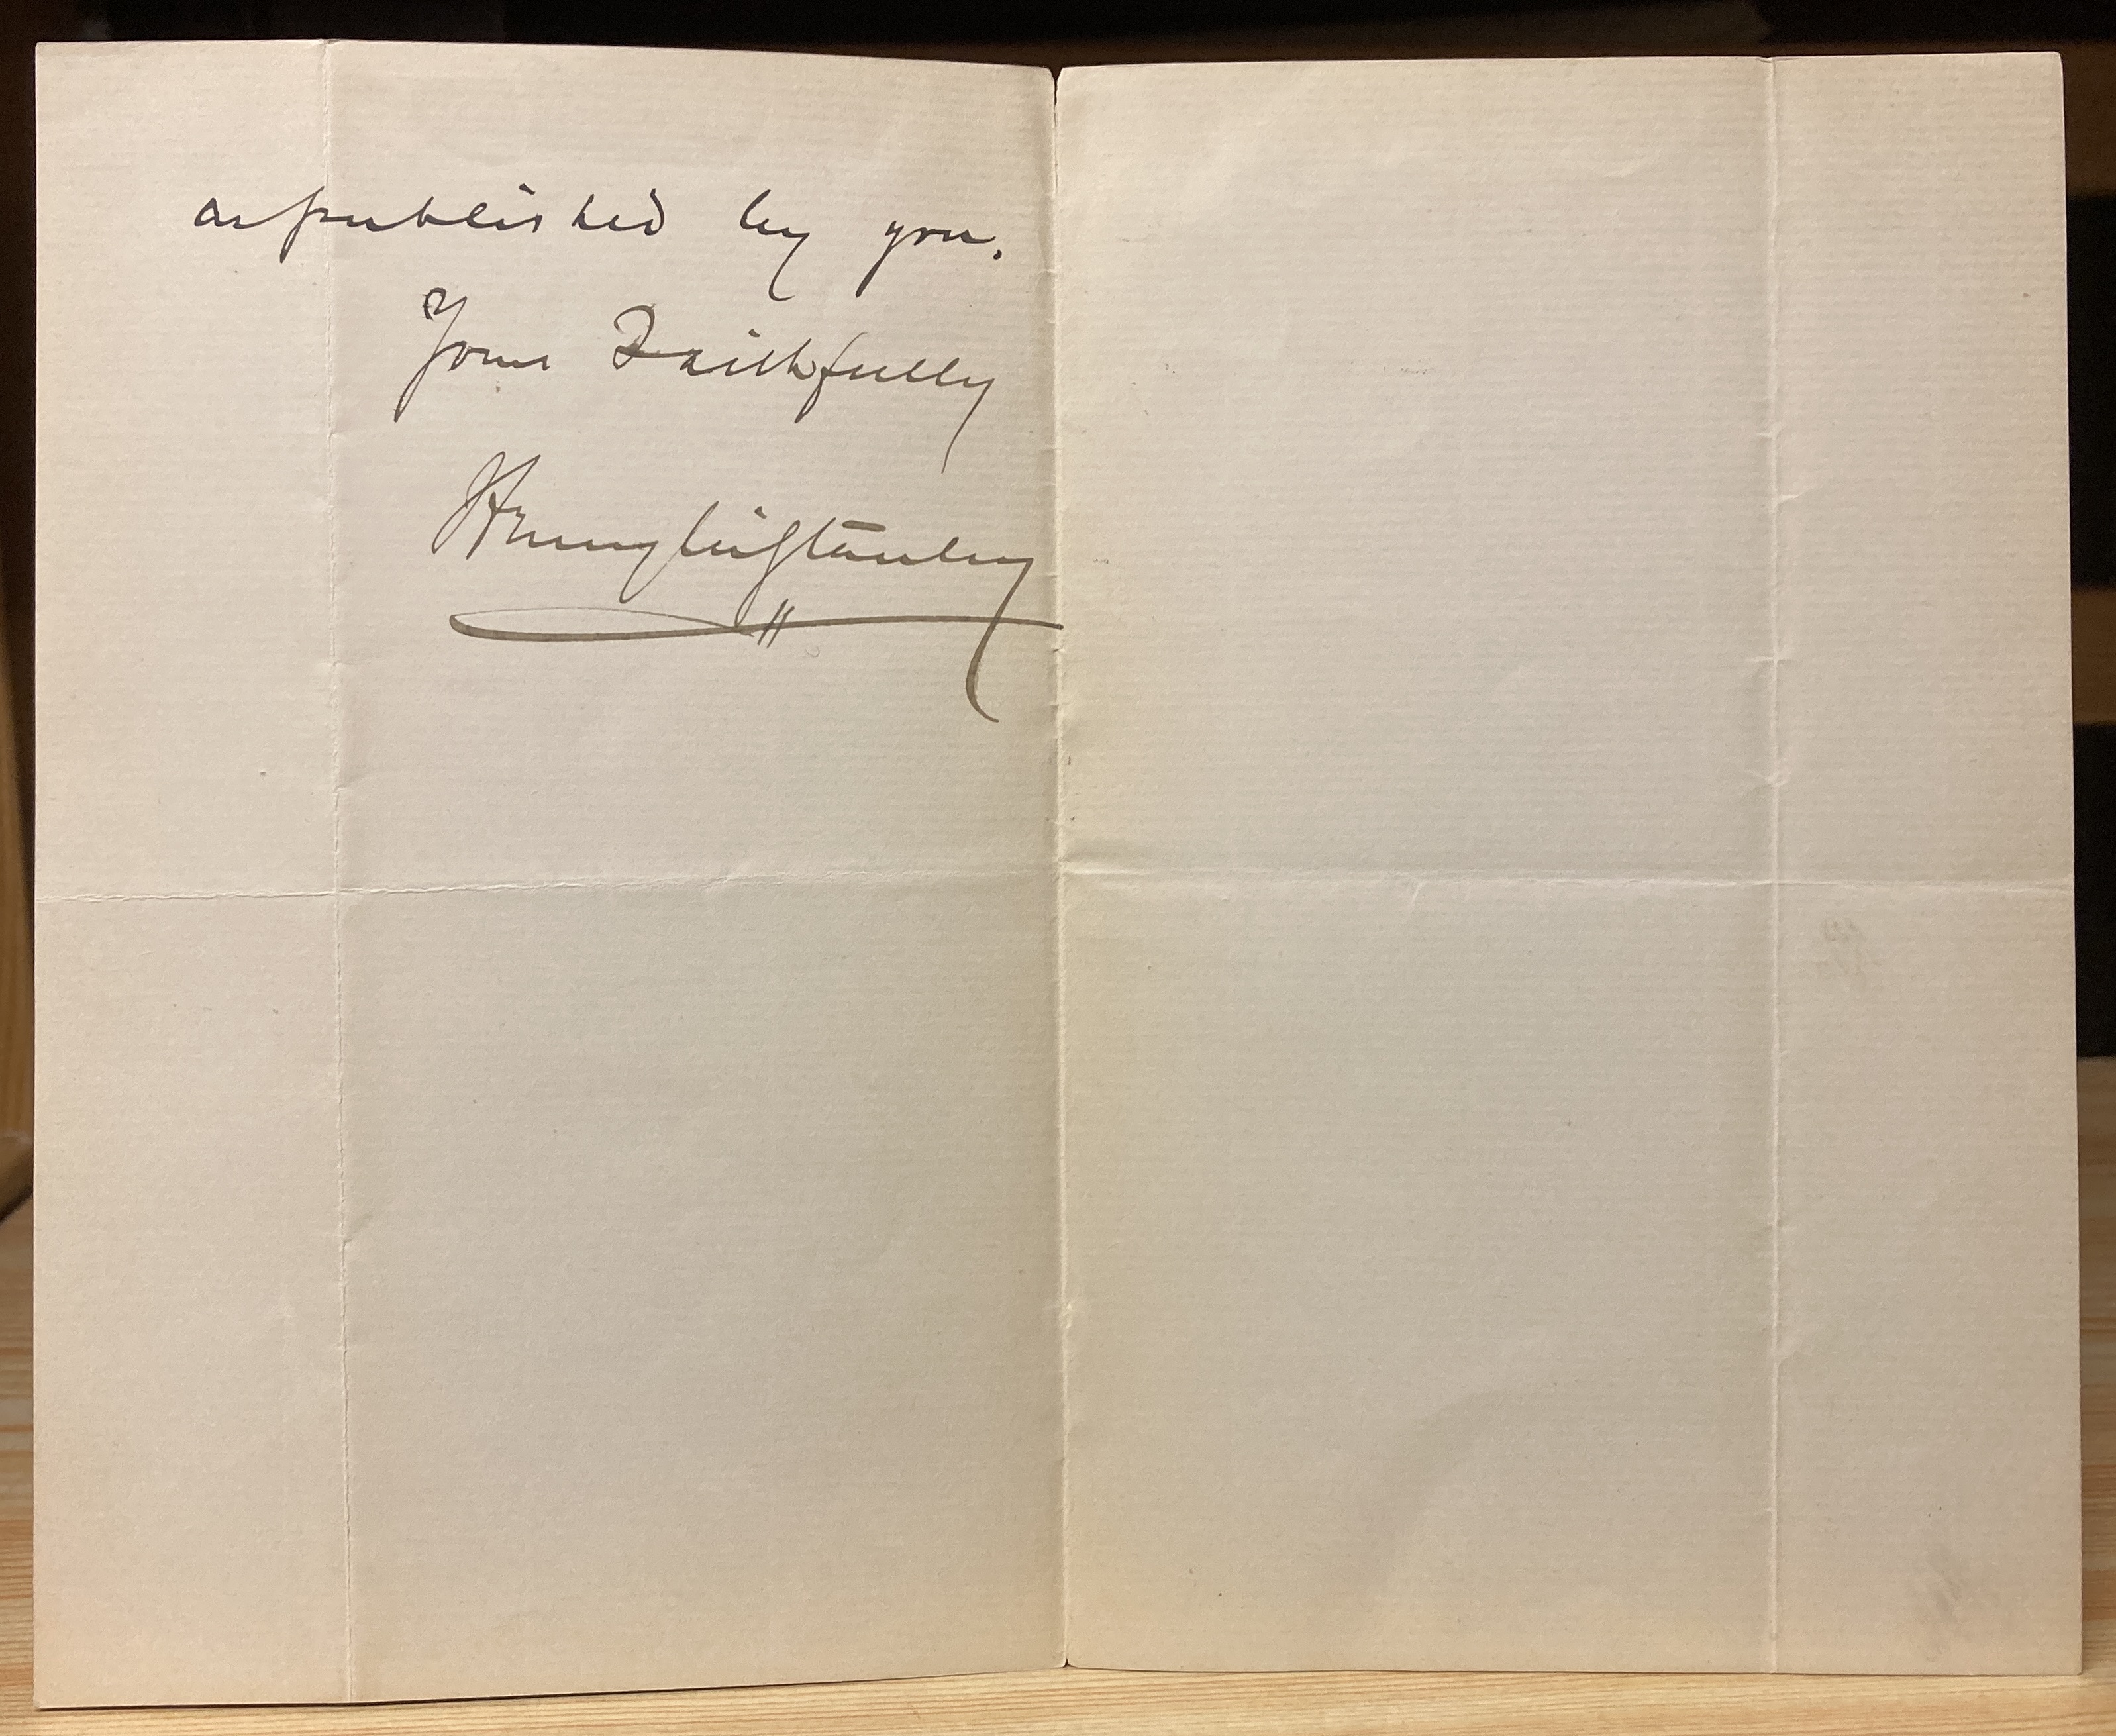 as published by you.
Yours Faithfully
Henry M Stanley